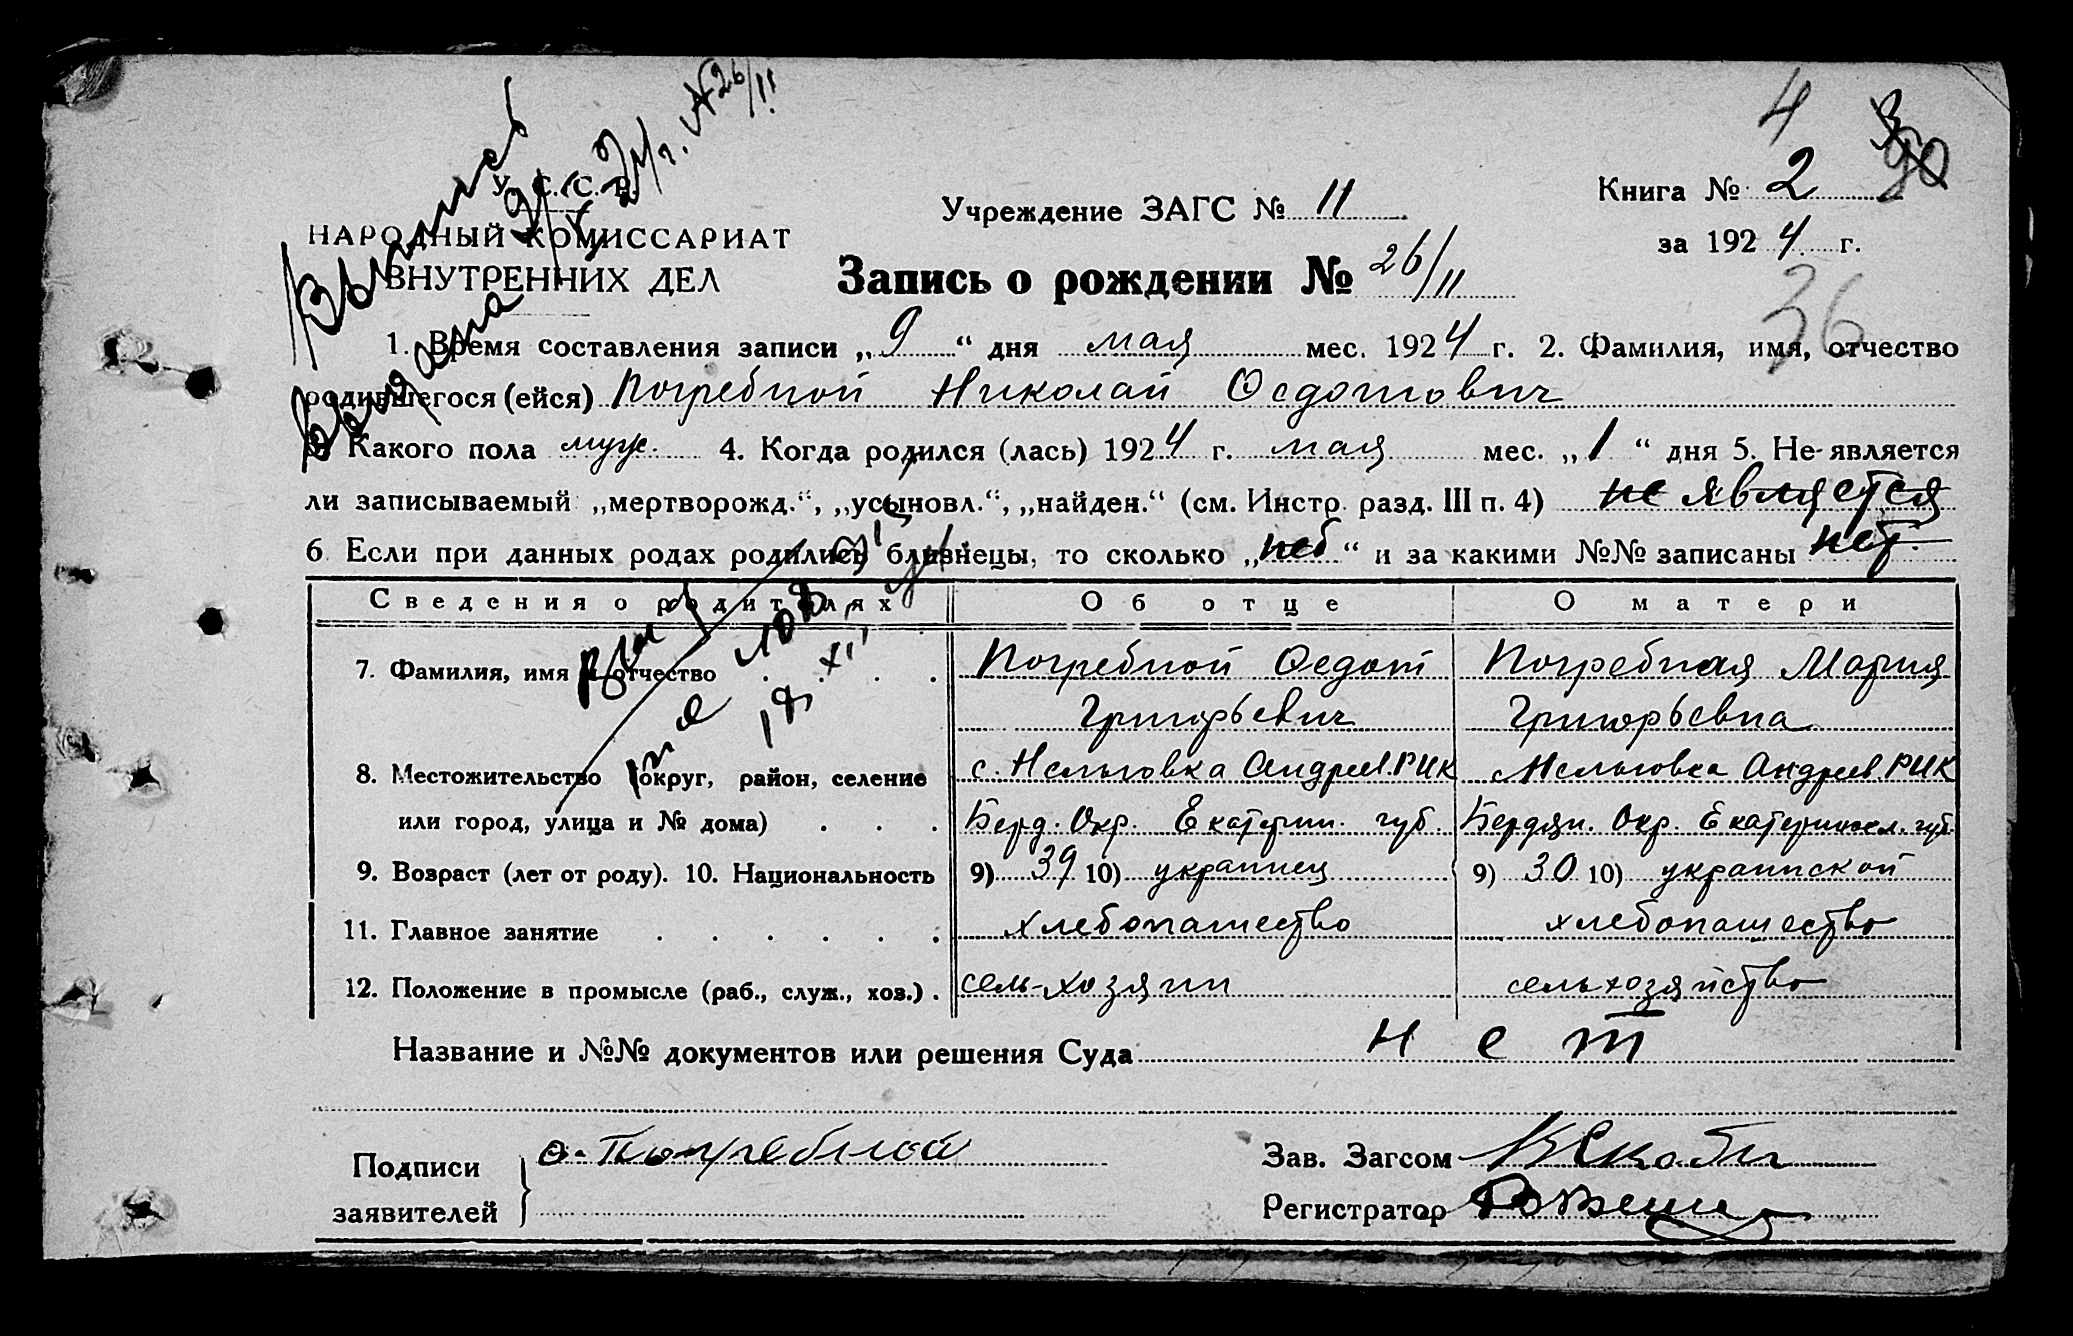 4
90
Выпись
выдана 9/V 24 г. № 26/11
У. С. С. Р.
НАРОДНЫЙ КОМИССАРИАТ
ВНУТРЕННИХ ДЕЛ
Учреждение ЗАГС № 11
Книга № 2
за 1924 г.
Запись о рождении № 26/11
36
1. Время составления записи „9“ дня мая мес. 1924 г. 2. Фамилия, имя, отчество
родившегося (ейся) Погребной Николай Федотович
Какого пола муж. 4. Когда родился (лась) 1924 г. мая мес. „1“ дня 5. Не является
ли записываемый „мертворожд.“, „усыновл.“, „найден.“ (см. Инстр. разд. III п. 4) не является
6. Если при данных родах родились близнецы, то сколько „неб“ и за какими №№ записаны нет.
Сведения о родителях Об отце О матери
7. Фамилия, имя и отчество Погребной Федот Погребная Мария
Григорьевич Григорьевна
8. Местожительство (округ, район, селение с. Нельговка Андреев. РИК с. Нельговка Андреев. РИК
или город, улица и № дома) Берд. Окр. Екатерин. губ. Бердян. Окр. губ.
9. Возраст (лет от роду). 10. Национальность 9) 39 10) украинец 9) 30 10) украинской
11. Главное занятие хлебопашество хлебопашество
12. Положение в промысле (раб., служ., хоз.) сель-хозяин сельхозяйство
Название и №№ документов или решения Суда нет
Подписи
заявителей
Ѳ. Погребной
Зав. Загсом
Регистратор